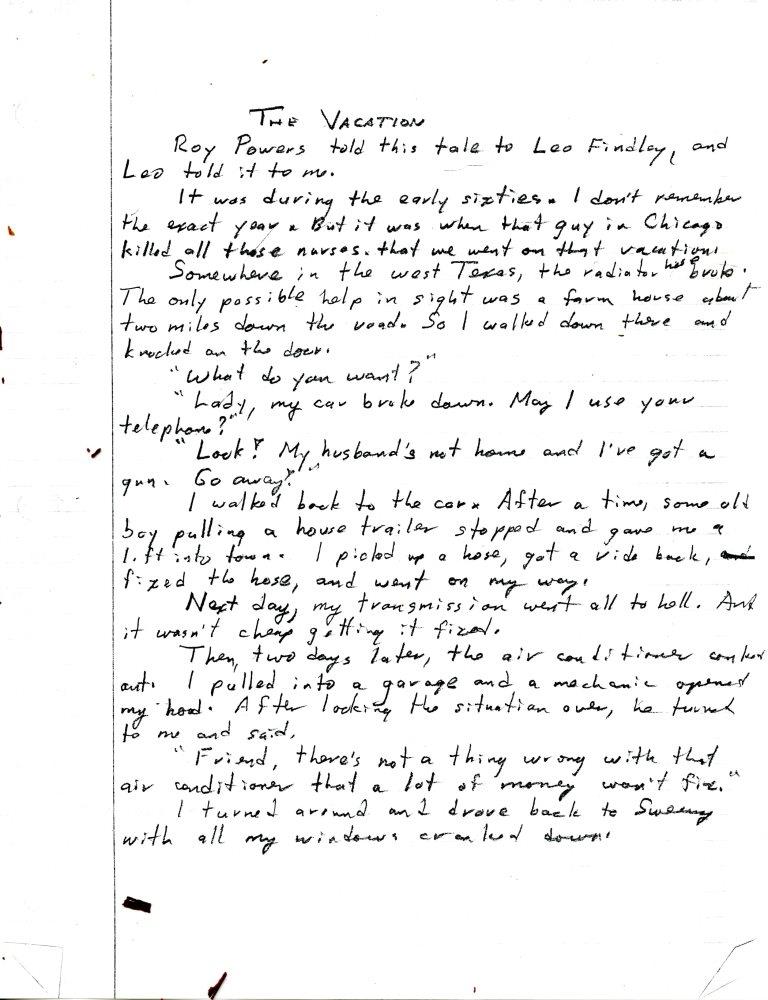 THE VACATION
Roy Powers told this tale to Leo Findley, and
Leo told it to me.
It was during the early sixties. I don't remember
the exact year. But it was when that guy in Chicago
killed all those nurses. that we went on that vacation.
Somewhere in the west Texas, the radiator hose broke.
The only possible help in sight was a farm house about
two miles down the road. So I walked down there and
knocked on the door.
"What do you want?"
"Lady, my car broke down. May I use your
telephone?"
"Look! My husband's not home and I've got a
gun. Go away!"
I walked back to the car. After a time, some old
boy pulling a house trailer stopped and gave me a
lift into town. I picked up a hose, got a ride back, and
fixed the hose, and went on my way.
Next day, my transmission went all to hell. And
it wasn't cheap getting it fixed.
Then, two days later, the air conditioner conked
out. I pulled into a garage and a mechanic opened
my hood. After looking the situation over, he turned
to me and said,
"Friend, there's not a thing wrong with that
air conditioner that a lot of money won't fix."
I turned around and drove back to Sweeny
with all my windows cranked down.